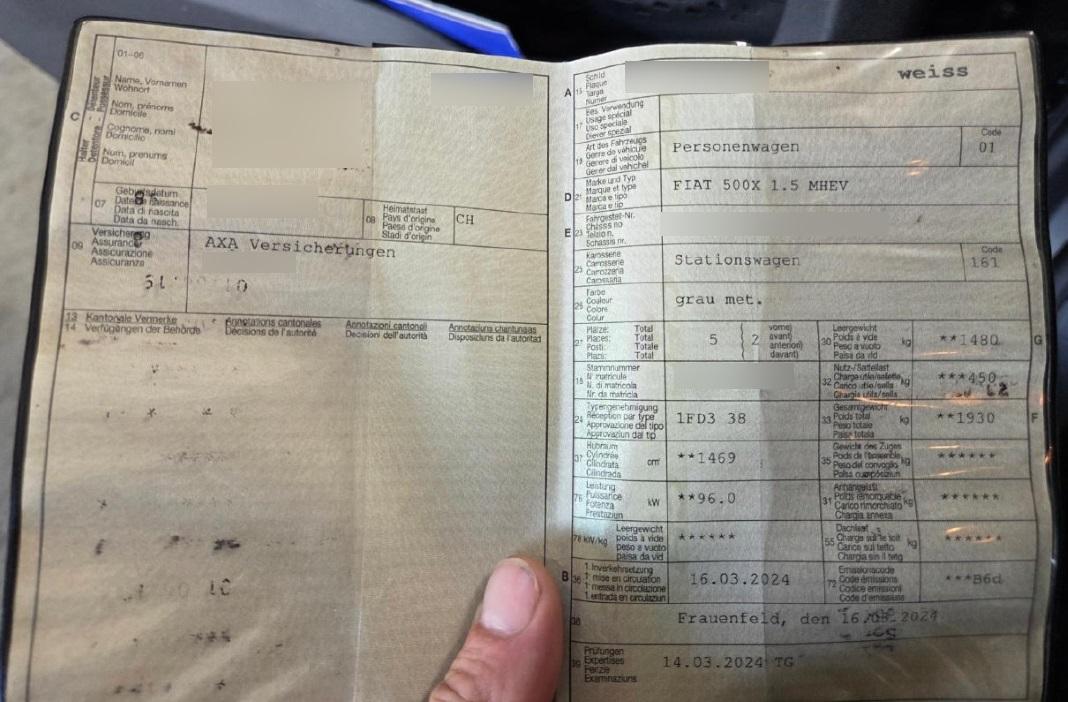 01-06
2
C
Halter
Détenteur
Detentore
Possessur
Name, Vornamen
Wohnort
Nom, prénoms
Domicile
Cognome, nomi
Domicilio
Num, prenums
Domicil
07
Geburtsdatum
Date de naissance
Data di nascita
Data da nasch.
08
Heimatstaat
Pays d'origine
Paese d'origine
Stadi d'origin
CH
09
Versicherung
Assurance
Assicurazione
Assicuranza
AXA Versicherungen
13 Kantonale Vermerke
14 Verfügungen der Behörde
Annotations cantonales
Décisions de l'autorité
Annotazioni cantonali
Decisioni dell'autorità
Annotaziuns chantunalas
Disposiziuns da l'autoritad
3
A 15
Schild
Plaque
Targa
Numer
weiss
17
Bes. Verwendung
Usage spécial
Uso speciale
Diever spezial
19
Art des Fahrzeugs
Genre de véhicule
Genere di veicolo
Gener dal vehichel
Personenwagen
Code
01
D 21
Marke und Typ
Marque et type
Marca e tipo
Marca e tip
FIAT 500X 1.5 MHEV
E 23
Fahrgestell-Nr.
Châssis no
Telaio n.
Schassis nr.
25
Karosserie
Carrosserie
Carrozzeria
Carossaria
Stationswagen
Code
161
26
Farbe
Couleur
Colore
Colur
grau met.
27
Plätze: Total
Places: Total
Posti: Totale
Plazs: Total
5 { 2 vorne)
avant)
anteriori)
davant)
30
Leergewicht
Poids à vide
Peso a vuoto
Paisa da vid
kg
**1480
G
18
Stammnummer
N° matricule
N. di matricola
Nr. da matricla
32
Nutz-/Sattellast
Charge utile/sellette
Carico utile/sella
Chargia utila/sella
kg
***450
24
Typengenehmigung
Réception par type
Approvazione del tipo
Approvaziun dal tip
1FD3 38
33
Gesamtgewicht
Poids total
Peso totale
Paisa totala
kg
**1930
F
37
Hubraum
Cylindrée
Cilindrata
Cilindrada
cm³
**1469
35
Gewicht des Zuges
Poids de l'ensemble
Peso del convoglio
Paisa cumposiziun
kg
******
76
Leistung
Puissance
Potenza
Prestaziun
kW
**96.0
31
Anhängelast
Poids remorquable
Carico rimorchiato
Chargia annexa
kg
******
78 kW/kg
Leergewicht
poids à vide
peso a vuoto
paisa da vid
******
55
Dachlast
Charge sur le toit
Carico sul tetto
Chargia sin il tetg
kg
******
B 36
1. Inverkehrsetzung
1ʳᵉ mise en circulation
1ª messa in circolazione
1. entrada en circulaziun
16.03.2024
72
Emissionscode
Code émissions
Codice emissioni
Code d'emissiuns
***B6d
38
Frauenfeld, den 16.03.2024
39
Prüfungen
Expertises
Perizie
Examinaziuns
14.03.2024 TG